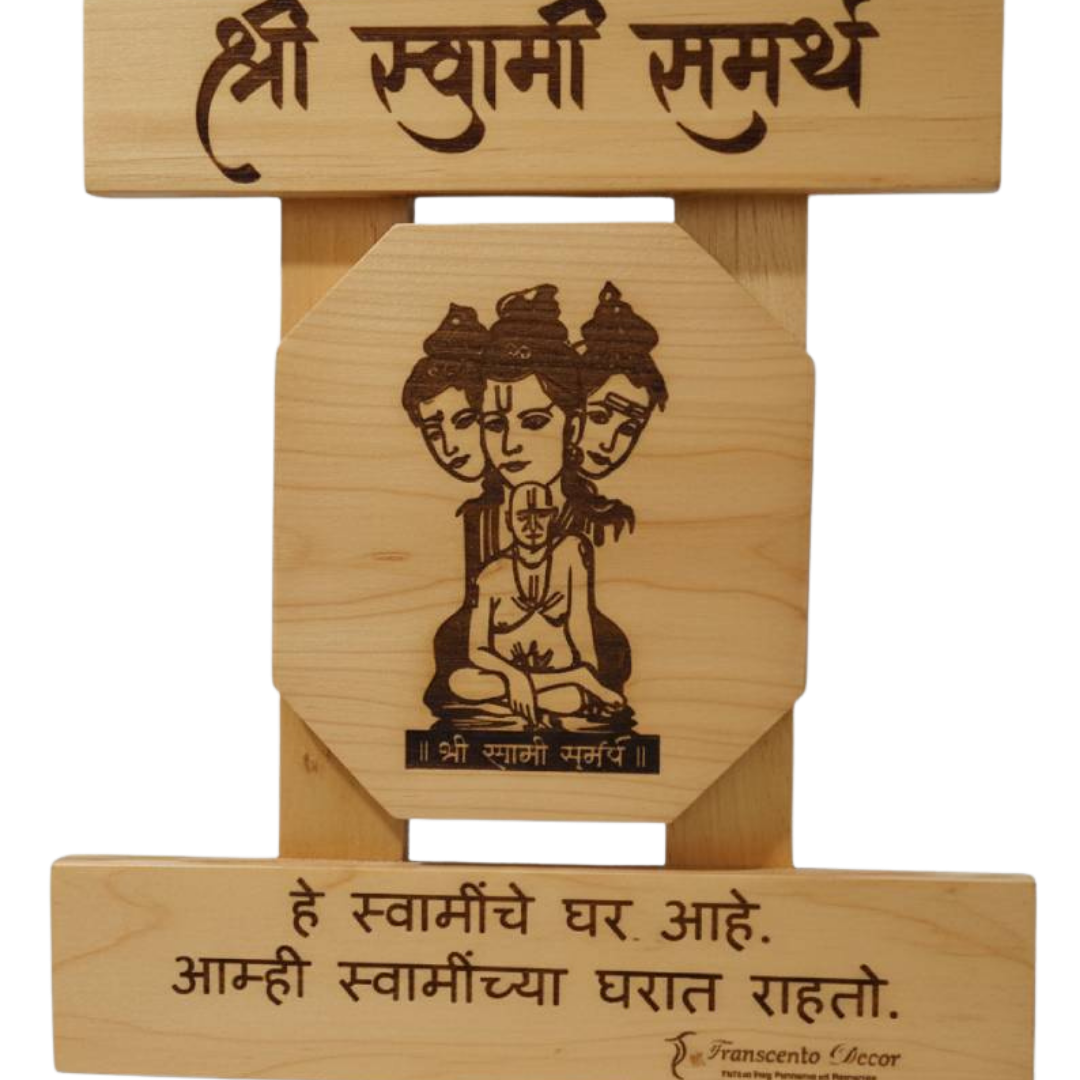 श्री स्वामी समर्थ
॥ श्री स्वामी समर्थ ॥
हे स्वामींचे घर आहे.
आम्ही स्वामींच्या घरात राहतो.
Transcento Decor